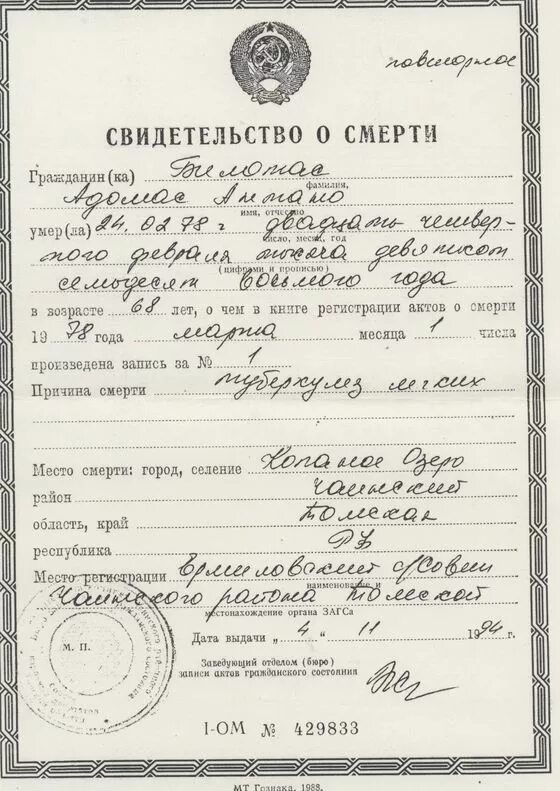 повторное
СВИДЕТЕЛЬСТВО О СМЕРТИ
Гражданин(ка) Билотас
фамилия,
Адомас Антано
имя, отчество
умер(ла) 24.02 78 г двадцать четвер-
число, месяц, год
того февраля тысяча девятьсот
(цифрами и прописью)
семьдесят восьмого года
в возрасте 68 лет, о чем в книге регистрации актов о смерти
19 78 года марта месяца 1 числа
произведена запись за № 1
Причина смерти туберкулез легких
Место смерти: город, селение Копаное Озеро
район Чаинский
область, край Томская
республика РФ
Место регистрации Ермиловский с/Совет
наименование и
Чаинского района Томской
местонахождение органа ЗАГСа
Дата выдачи „ 4 “ 11 1994 г.
М. П.
Заведующий отделом (бюро)
записи актов гражданского состояния
I-ОМ № 429833
МТ Гознака. 1988.